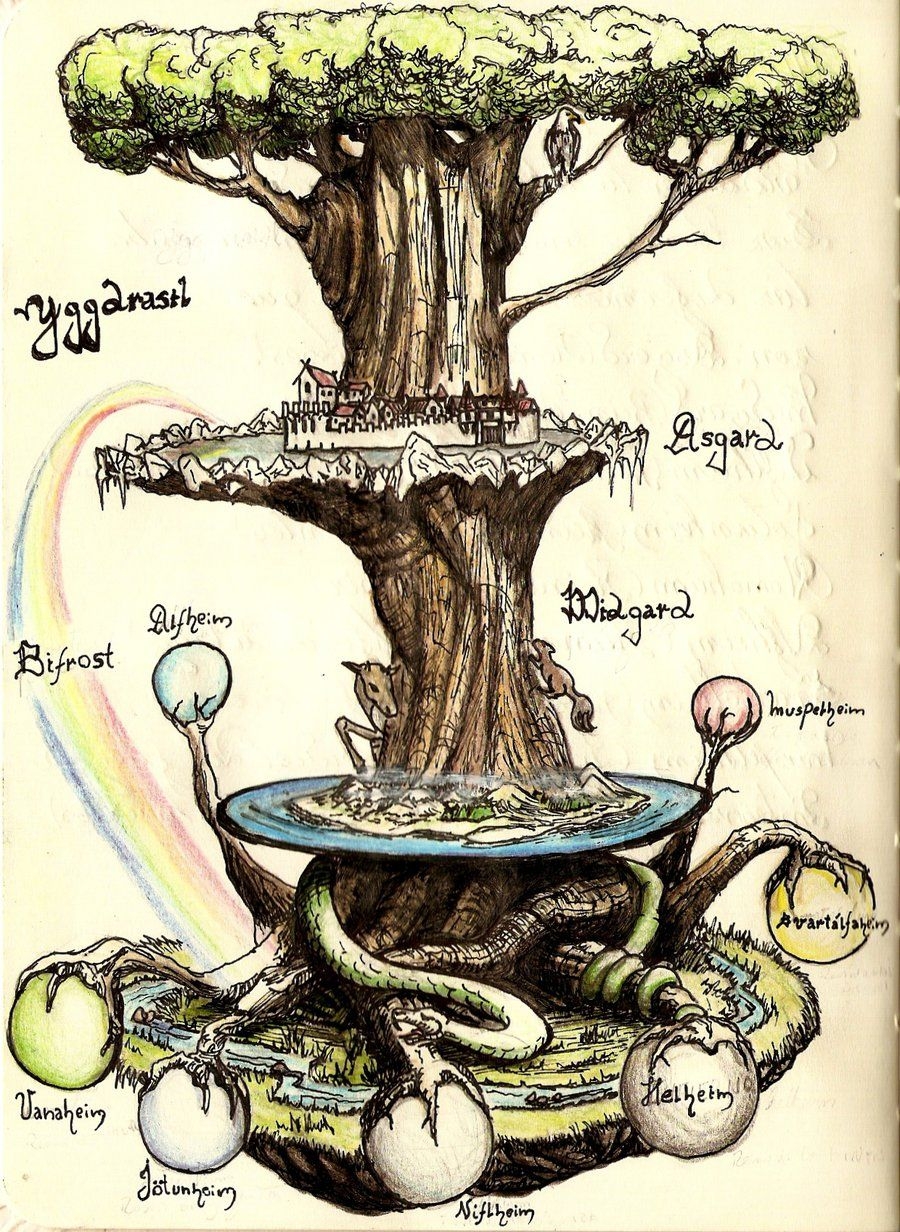 Yggdrasil
Asgard
Midgard
Alfheim
Bifrost
muspelheim
Svartálfaheim
Helheim
Vanaheim
Jötunheim
Niflheim